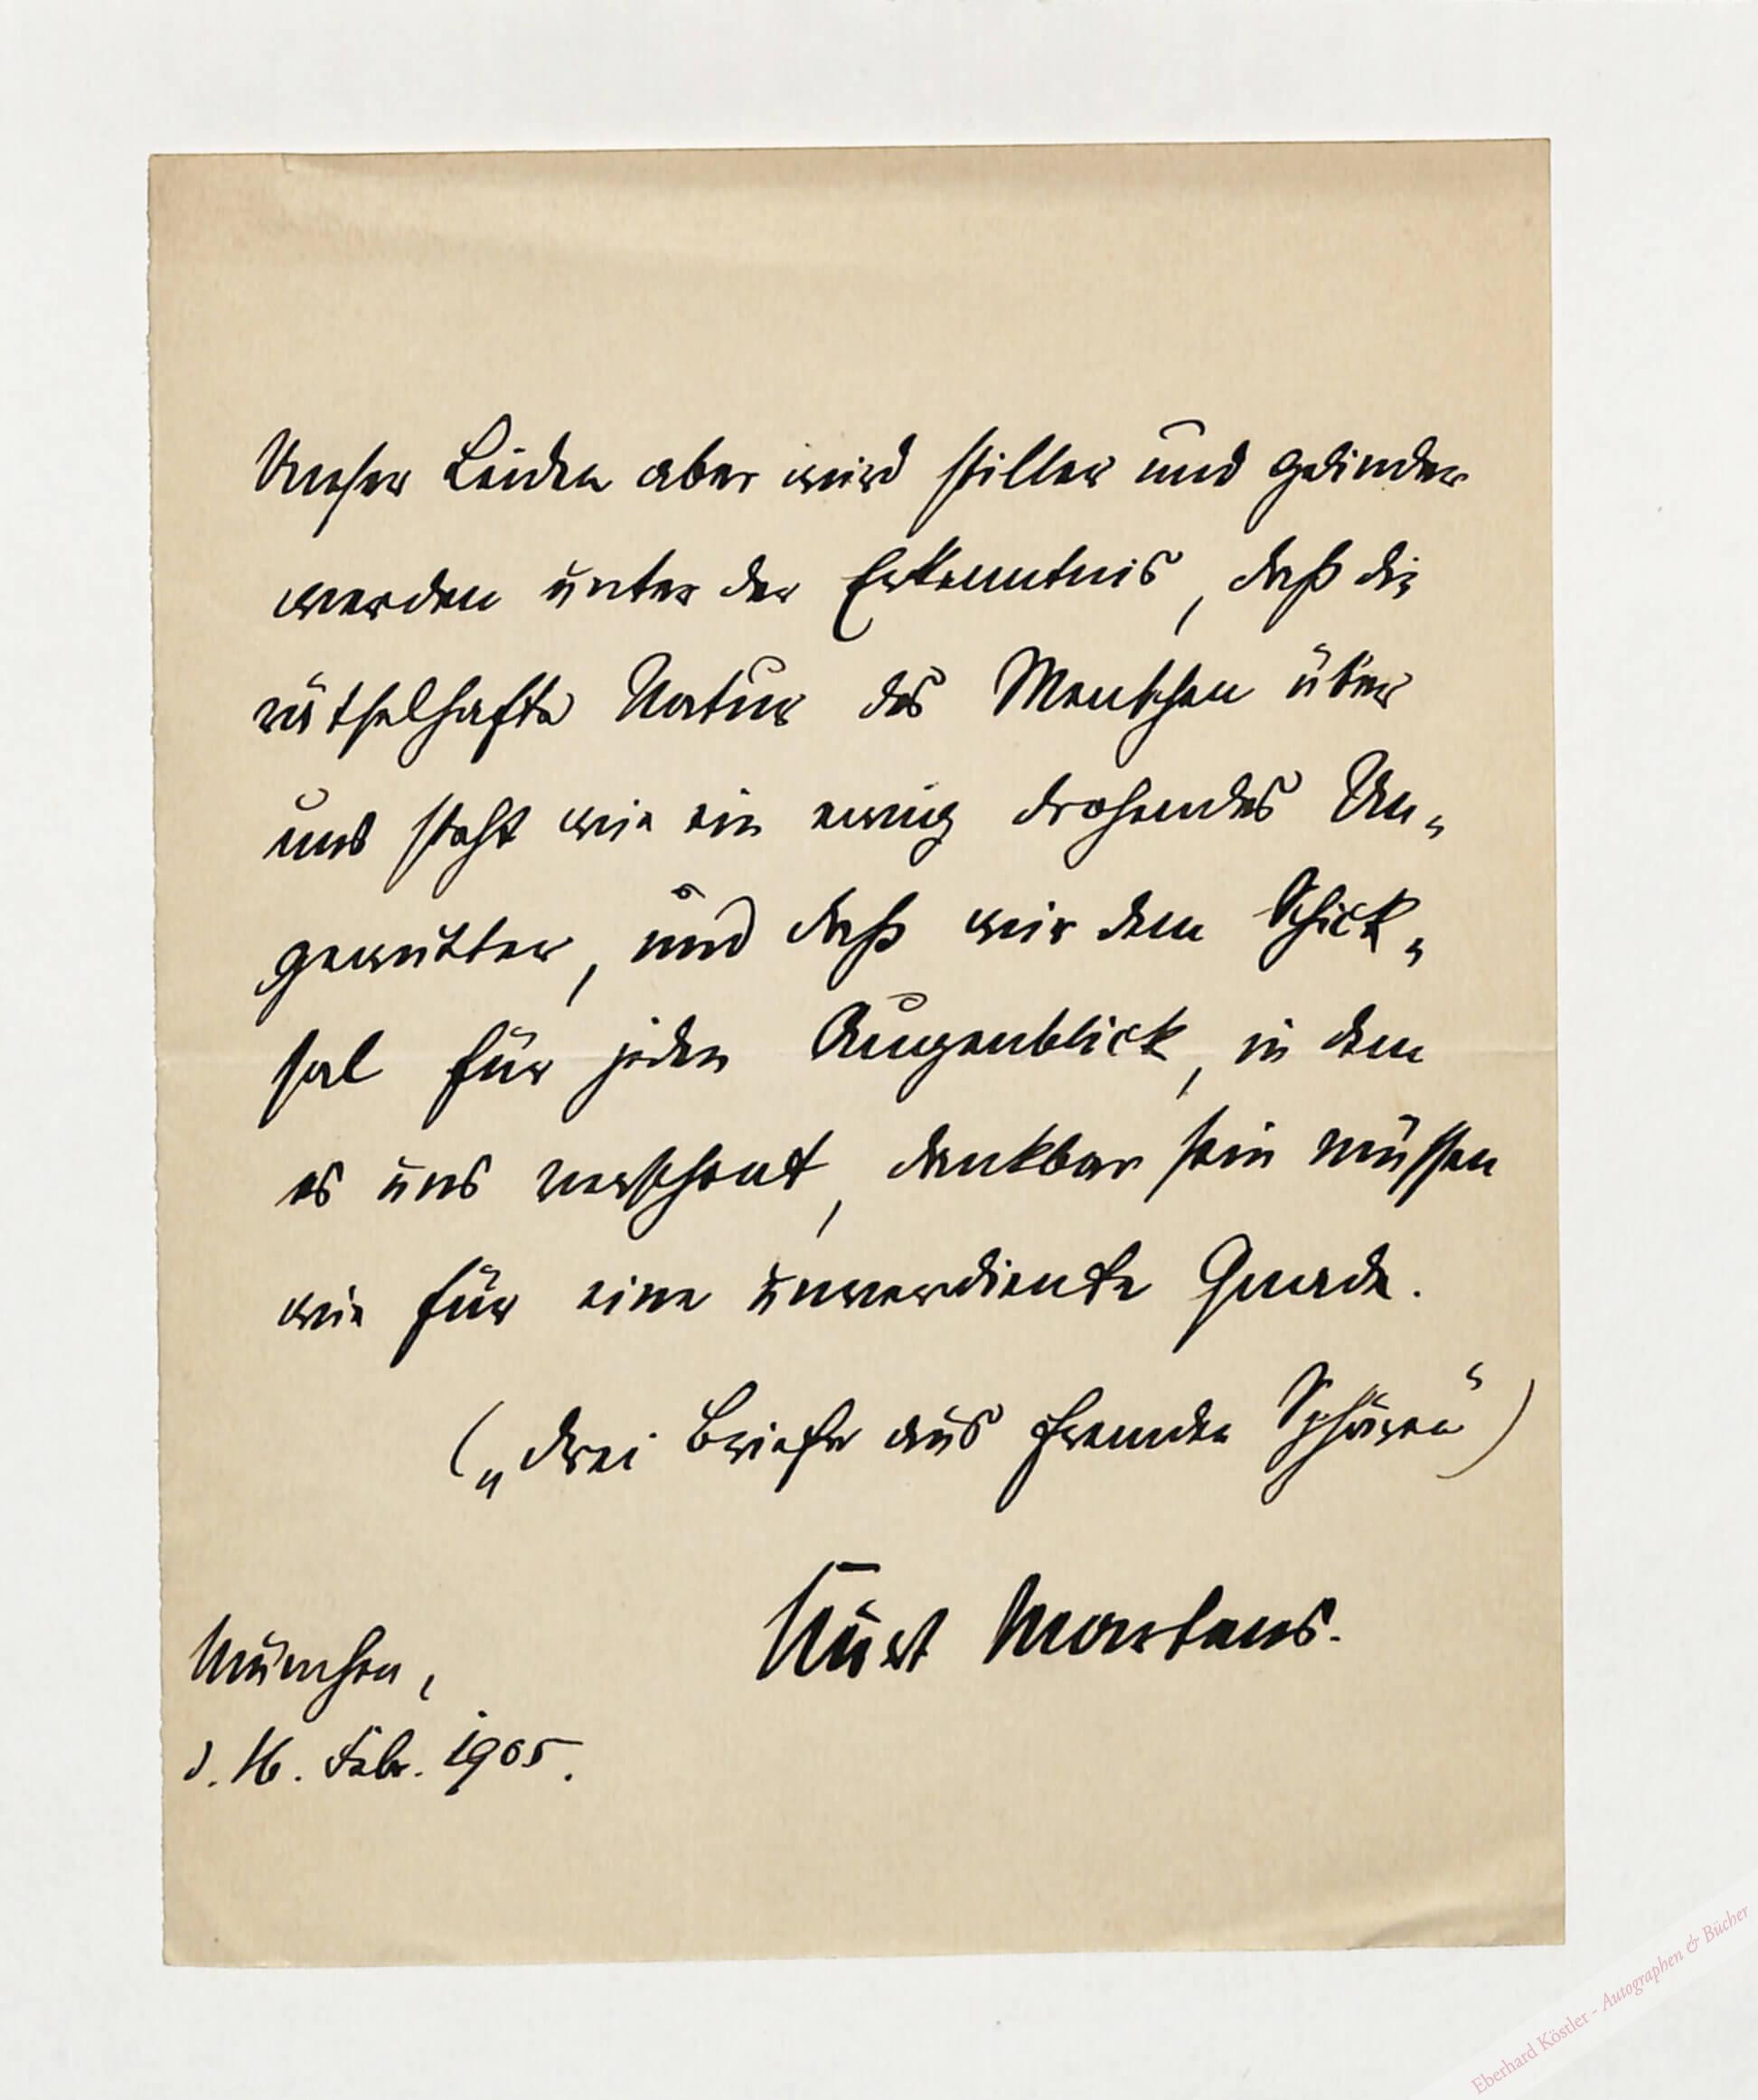 Unser Leiden aber wird stiller und gelinder
werden unter der Erkenntnis, daß die
rätselhafte Natur des Menschen über
uns steht wie ein ewig drohendes Un-
gewitter, und daß wir dem Schick-
sal für jeden Augenblick, in dem
es uns verschont, dankbar sein müssen
wie für eine unverdiente Gnade.
(„Drei Briefe aus fremden Sphären“)
Kurt Martens.
München,
d. 16. Febr. 1905.
Eberhard Köstler - Autographen & Bücher